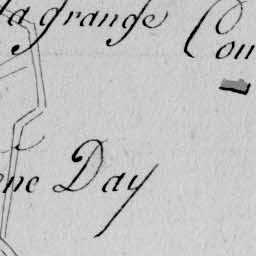 lagrange Com
ene Day